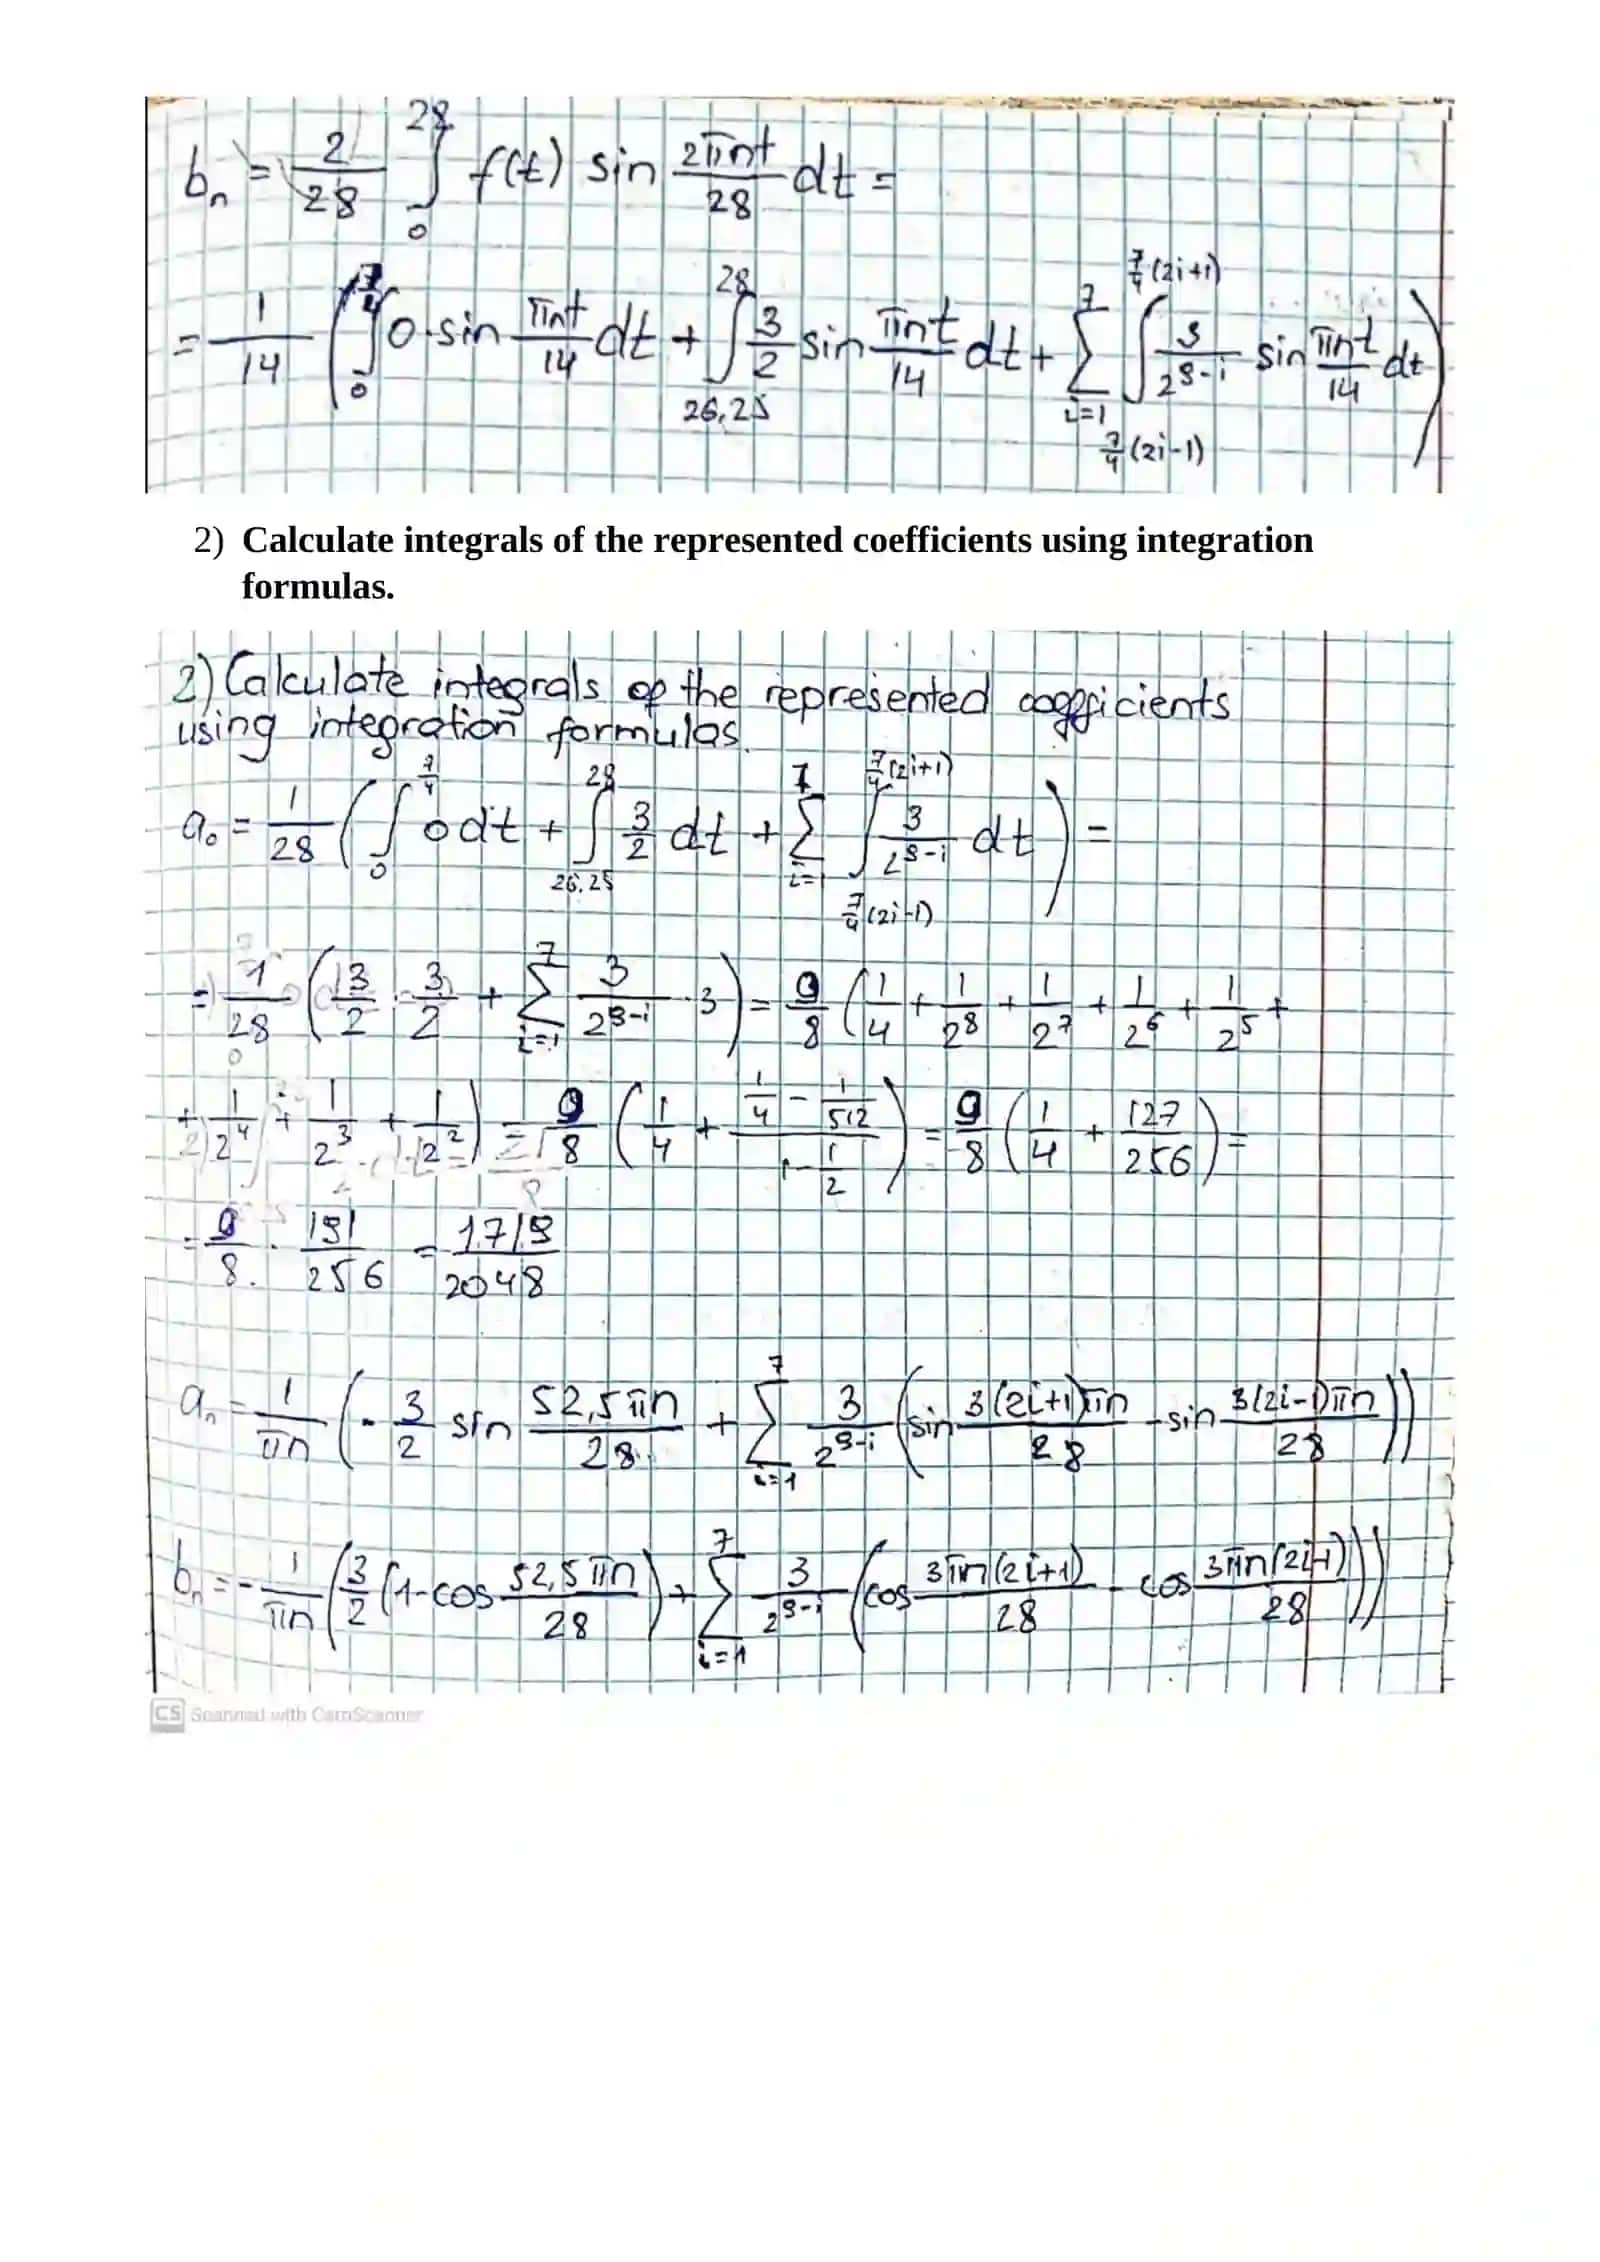 bₙ = 2/28 ∫₀²⁸ f(t) sin 2πnt/28 dt =
= 1/14 (∫₀^(7/4) 0·sin πnt/14 dt + ∫_(26,25)^28 3/2 sin πnt/14 dt + Σ_(i=1)^7 ∫_(7/4(2i-1))^(7/4(2i+1)) 3/2^(9-i) sin πnt/14 dt)
2) Calculate integrals of the represented coefficients using integration
formulas.
2) Calculate integrals of the represented coefficients
using integration formulas.
a₀ = 1/28 (∫₀^(7/4) 0 dt + ∫_(26,25)^28 3/2 dt + Σ_(i=1)^7 ∫_(7/4(2i-1))^(7/4(2i+1)) 3/2^(9-i) dt) =
= 1/28 (3/2 · 3/2 + Σ_(i=1)^7 3/2^(9-i) · 3) = 9/8 (1/4 + 1/2⁸ + 1/2⁷ + 1/2⁶ + 1/2⁵ +
+ 1/2⁴ + 1/2³ + 1/2²) = 9/8 (1/4 + (1/4 - 1/512)/(1 - 1/2)) = 9/8 (1/4 + 127/256) =
= 9/8 · 191/256 = 1719/2048
aₙ = 1/πn (- 3/2 sin 52,5πn/28 + Σ_(i=1)^7 3/2^(9-i) (sin 3(2i+1)πn/28 - sin 3(2i-1)πn/28))
bₙ = - 1/πn (3/2 (1-cos 52,5πn/28) + Σ_(i=1)^7 3/2^(9-i) (cos 3πn(2i+1)/28 - cos 3πn(2i-1)/28))
CS Scanned with CamScanner